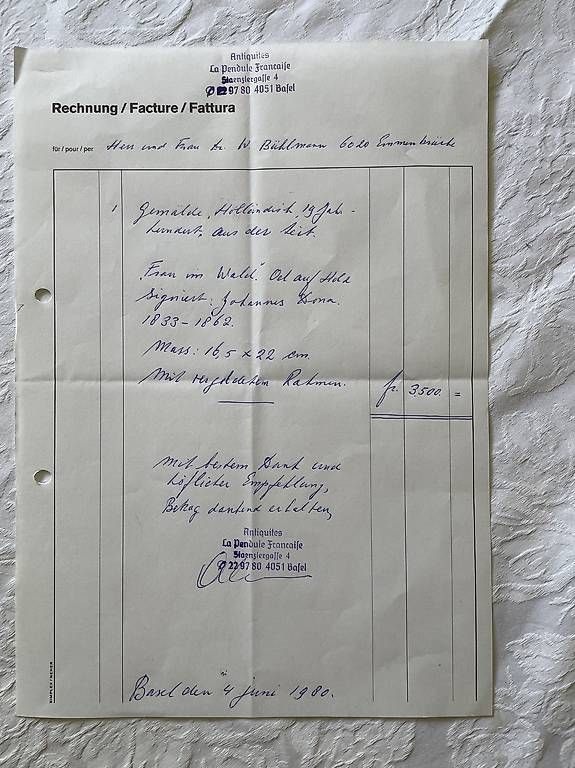 Antiquites
La Pendule Francaise
Staenzlergasse 4
✆ 22 97 80 4051 Basel
Rechnung / Facture / Fattura
für / pour / per Herr und Frau Dr. W. Bühlmann 6020 Emmenbrücke
1 Gemälde, Holländisch, 19 Jahr-
hundert, aus der Zeit.
"Frau im Wald." Oel auf Holz
Signiert: Johannes Dona.
1833-1862.
Mass: 16,5 x 22 cm.
Mit vergoldetem Rahmen. fr. 3500. =
Mit bestem Dank und
höflicher Empfehlung,
Betrag dankend erhalten,
Antiquites
La Pendule Francaise
Staenzlergasse 4
✆ 22 97 80 4051 Basel
Basel den 4 Juni 1980.